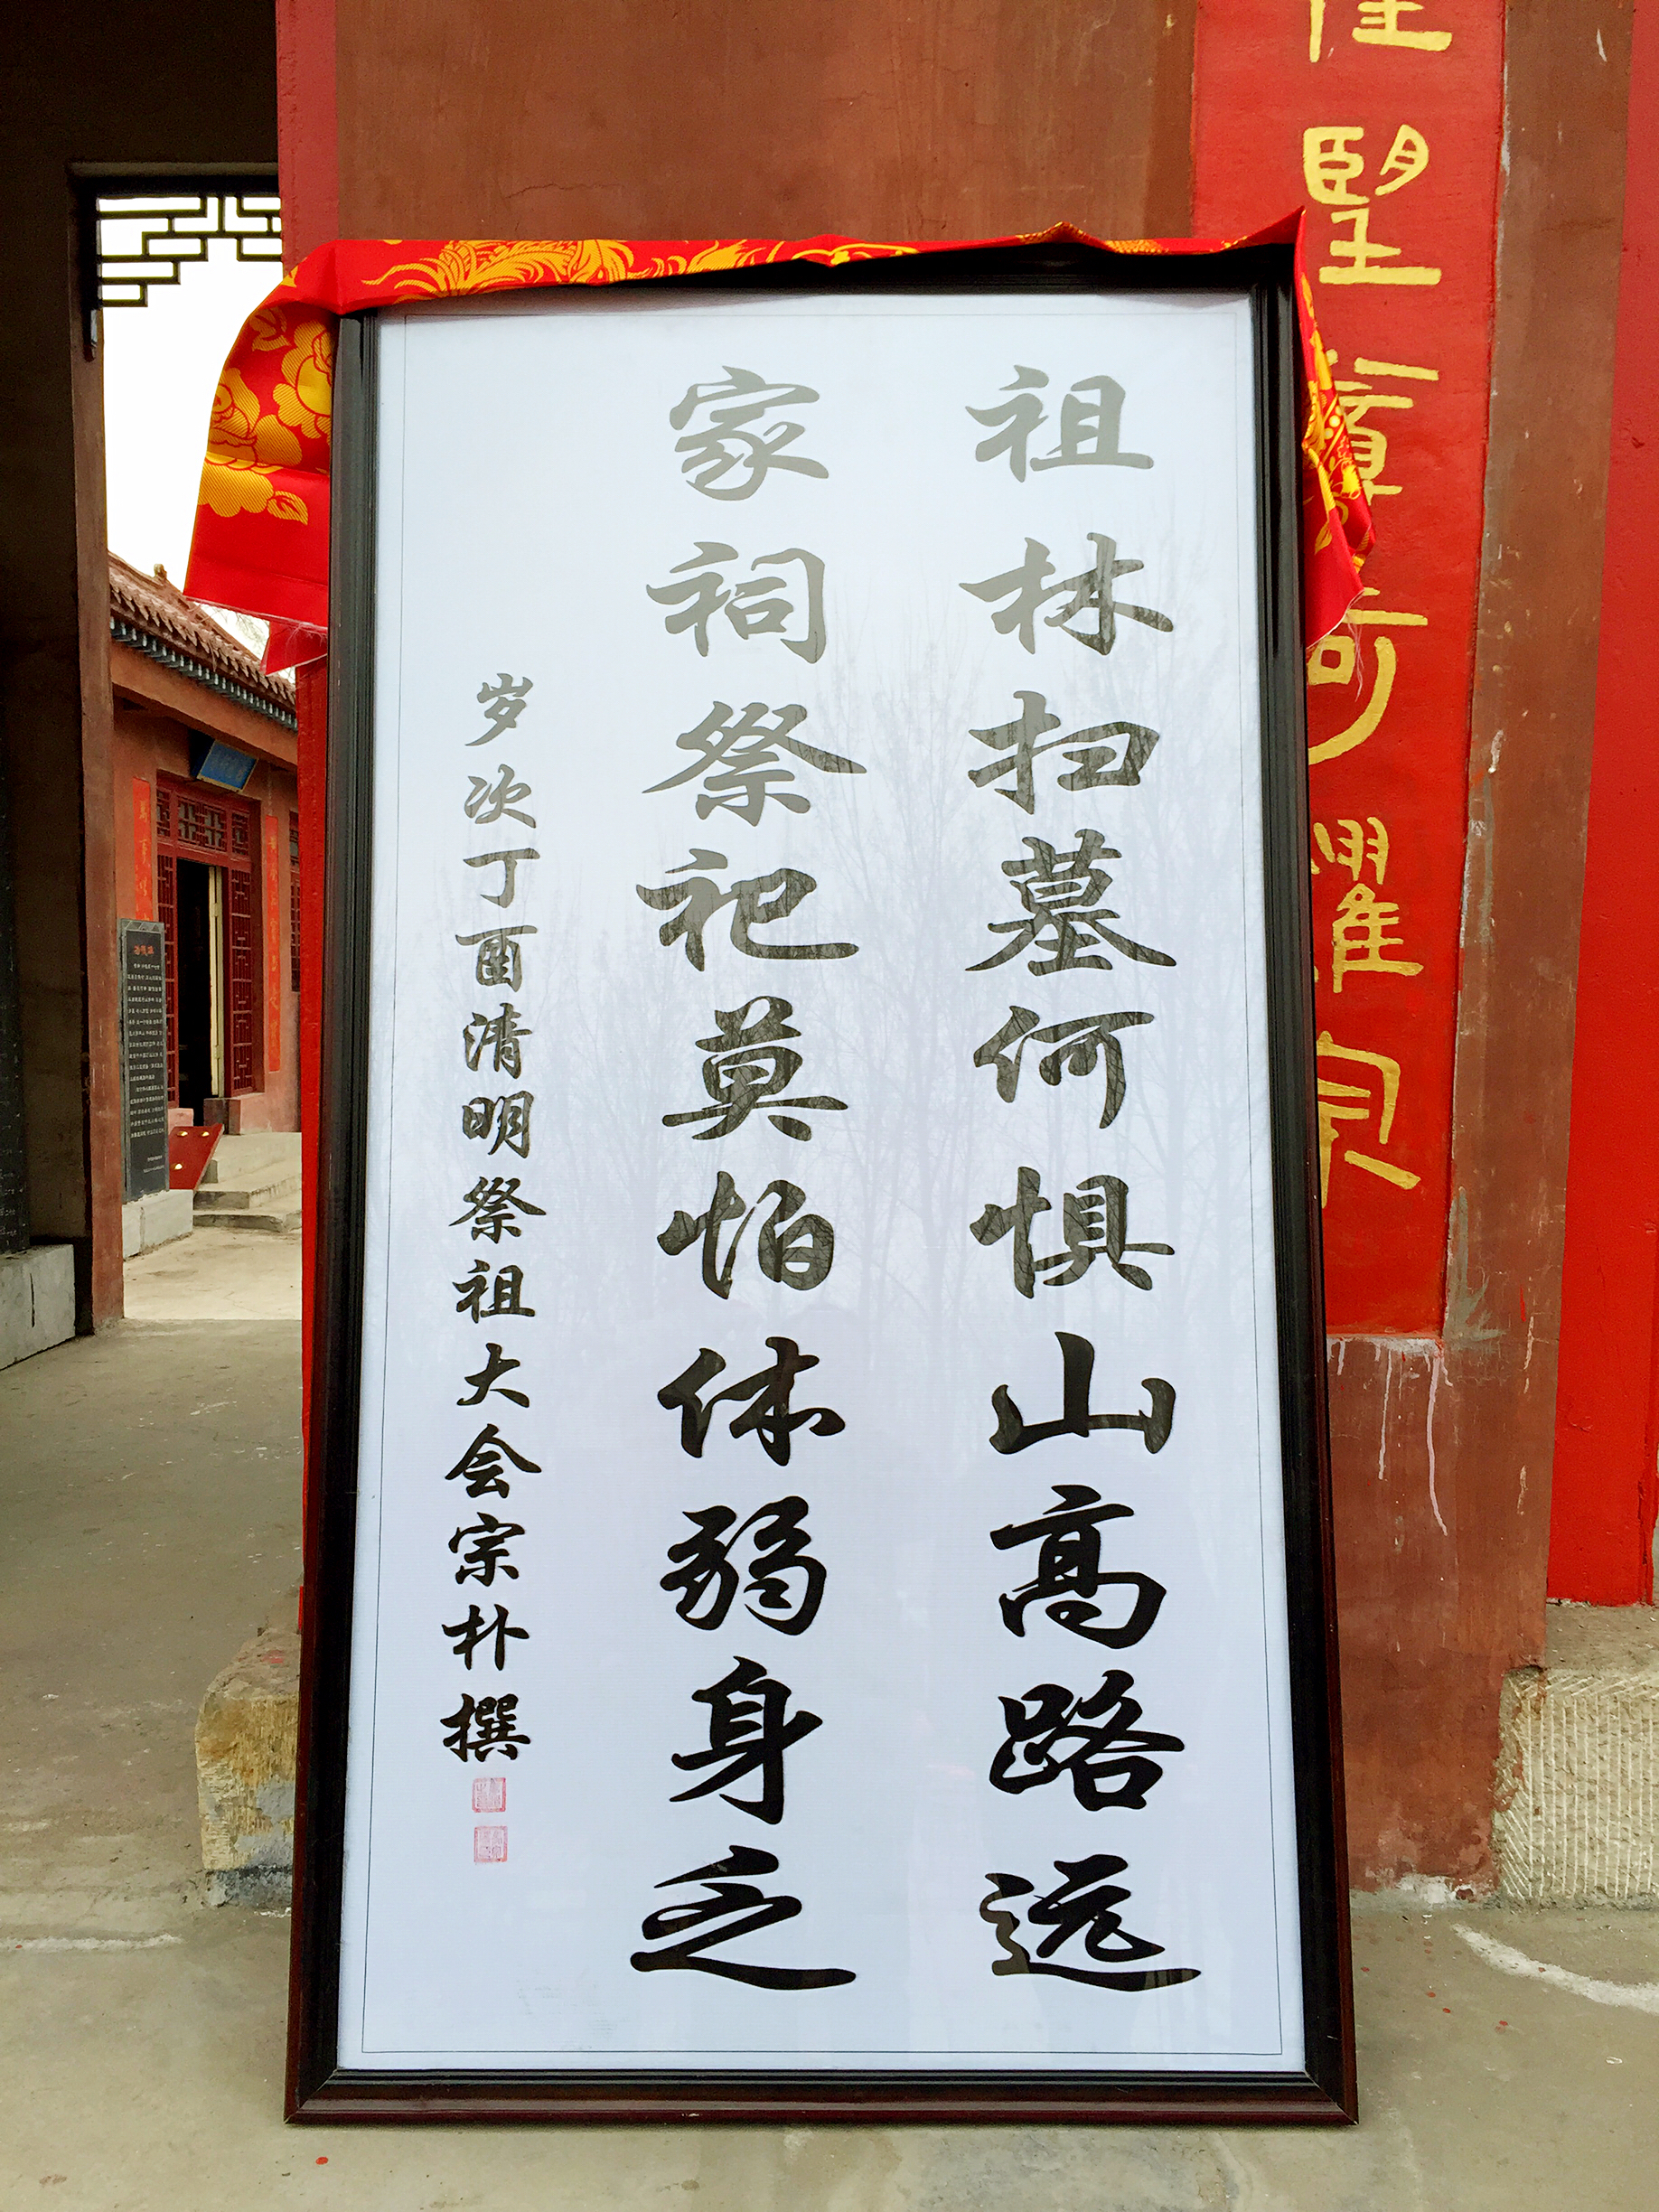 祖林扫墓何惧山高路远
家祠祭祀莫怕体弱身乏
岁次丁酉清明祭祖大会宗朴撰